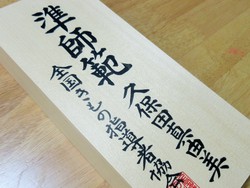 準師範
久保田真由美
全国きもの指導者協会